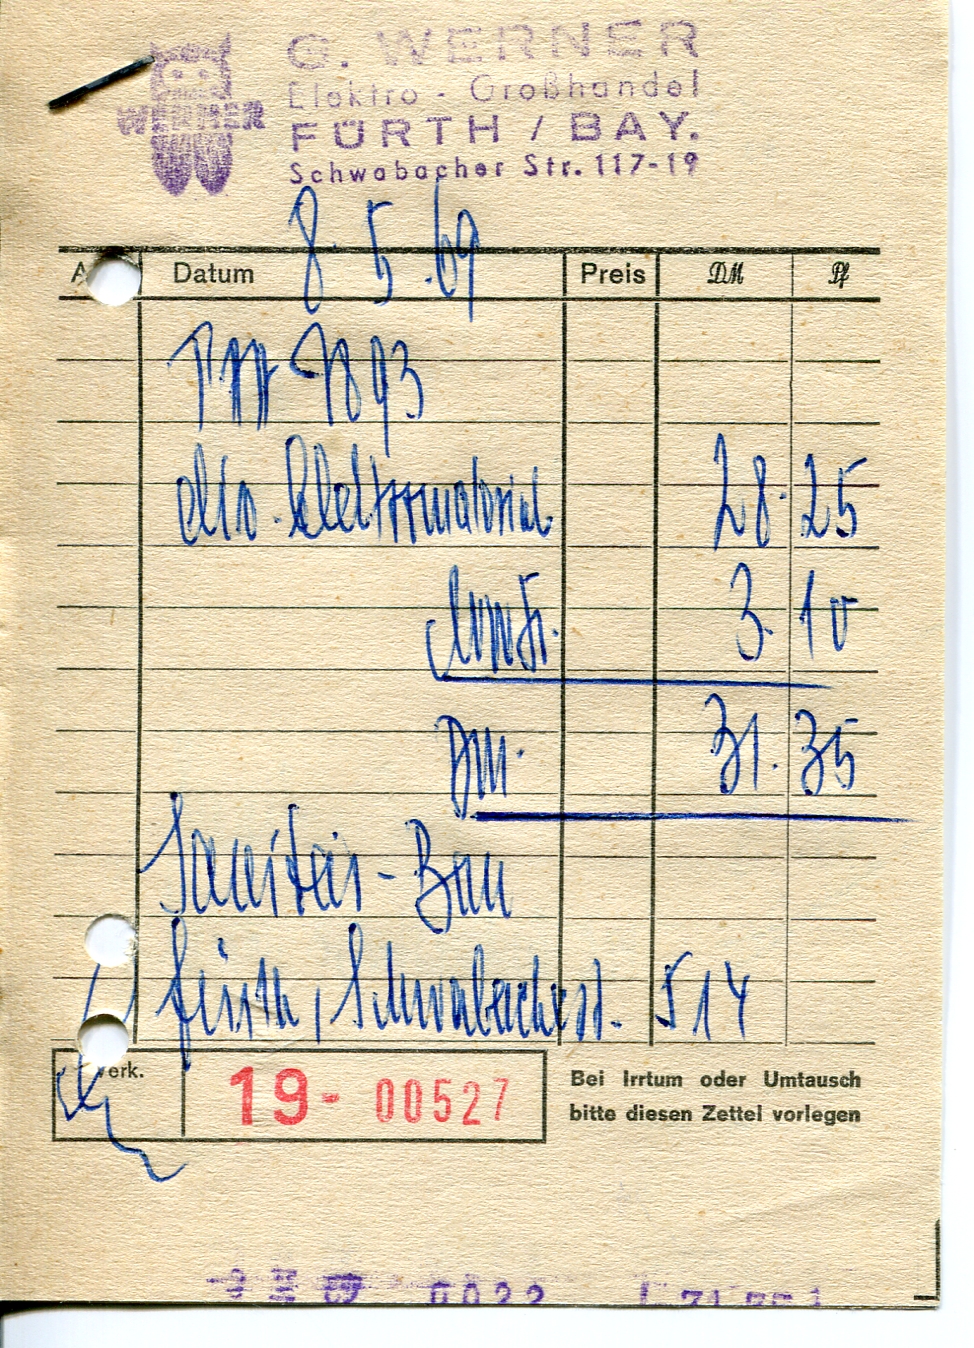 WERNER
G. WERNER
Elektro - Großhandel
FÜRTH / BAY.
Schwabacher Str. 117-19
Datum 8.5.69 Preis DM Pf
7893
div. Elektromaterial 28.25
Mwst. 3.10
DM. 31.35
Sanitär-Bau
Fürth, Schwabacherst. 514
verk.
19- 00527
Bei Irrtum oder Umtausch
bitte diesen Zettel vorlegen
0022